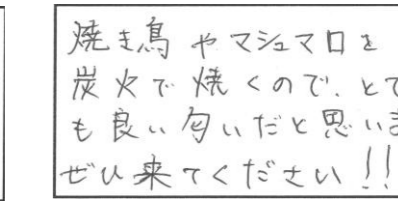 焼き鳥やマシュマロを
炭火で焼くので、とて
も良い匂いだと思いま
ぜひ来てください!!